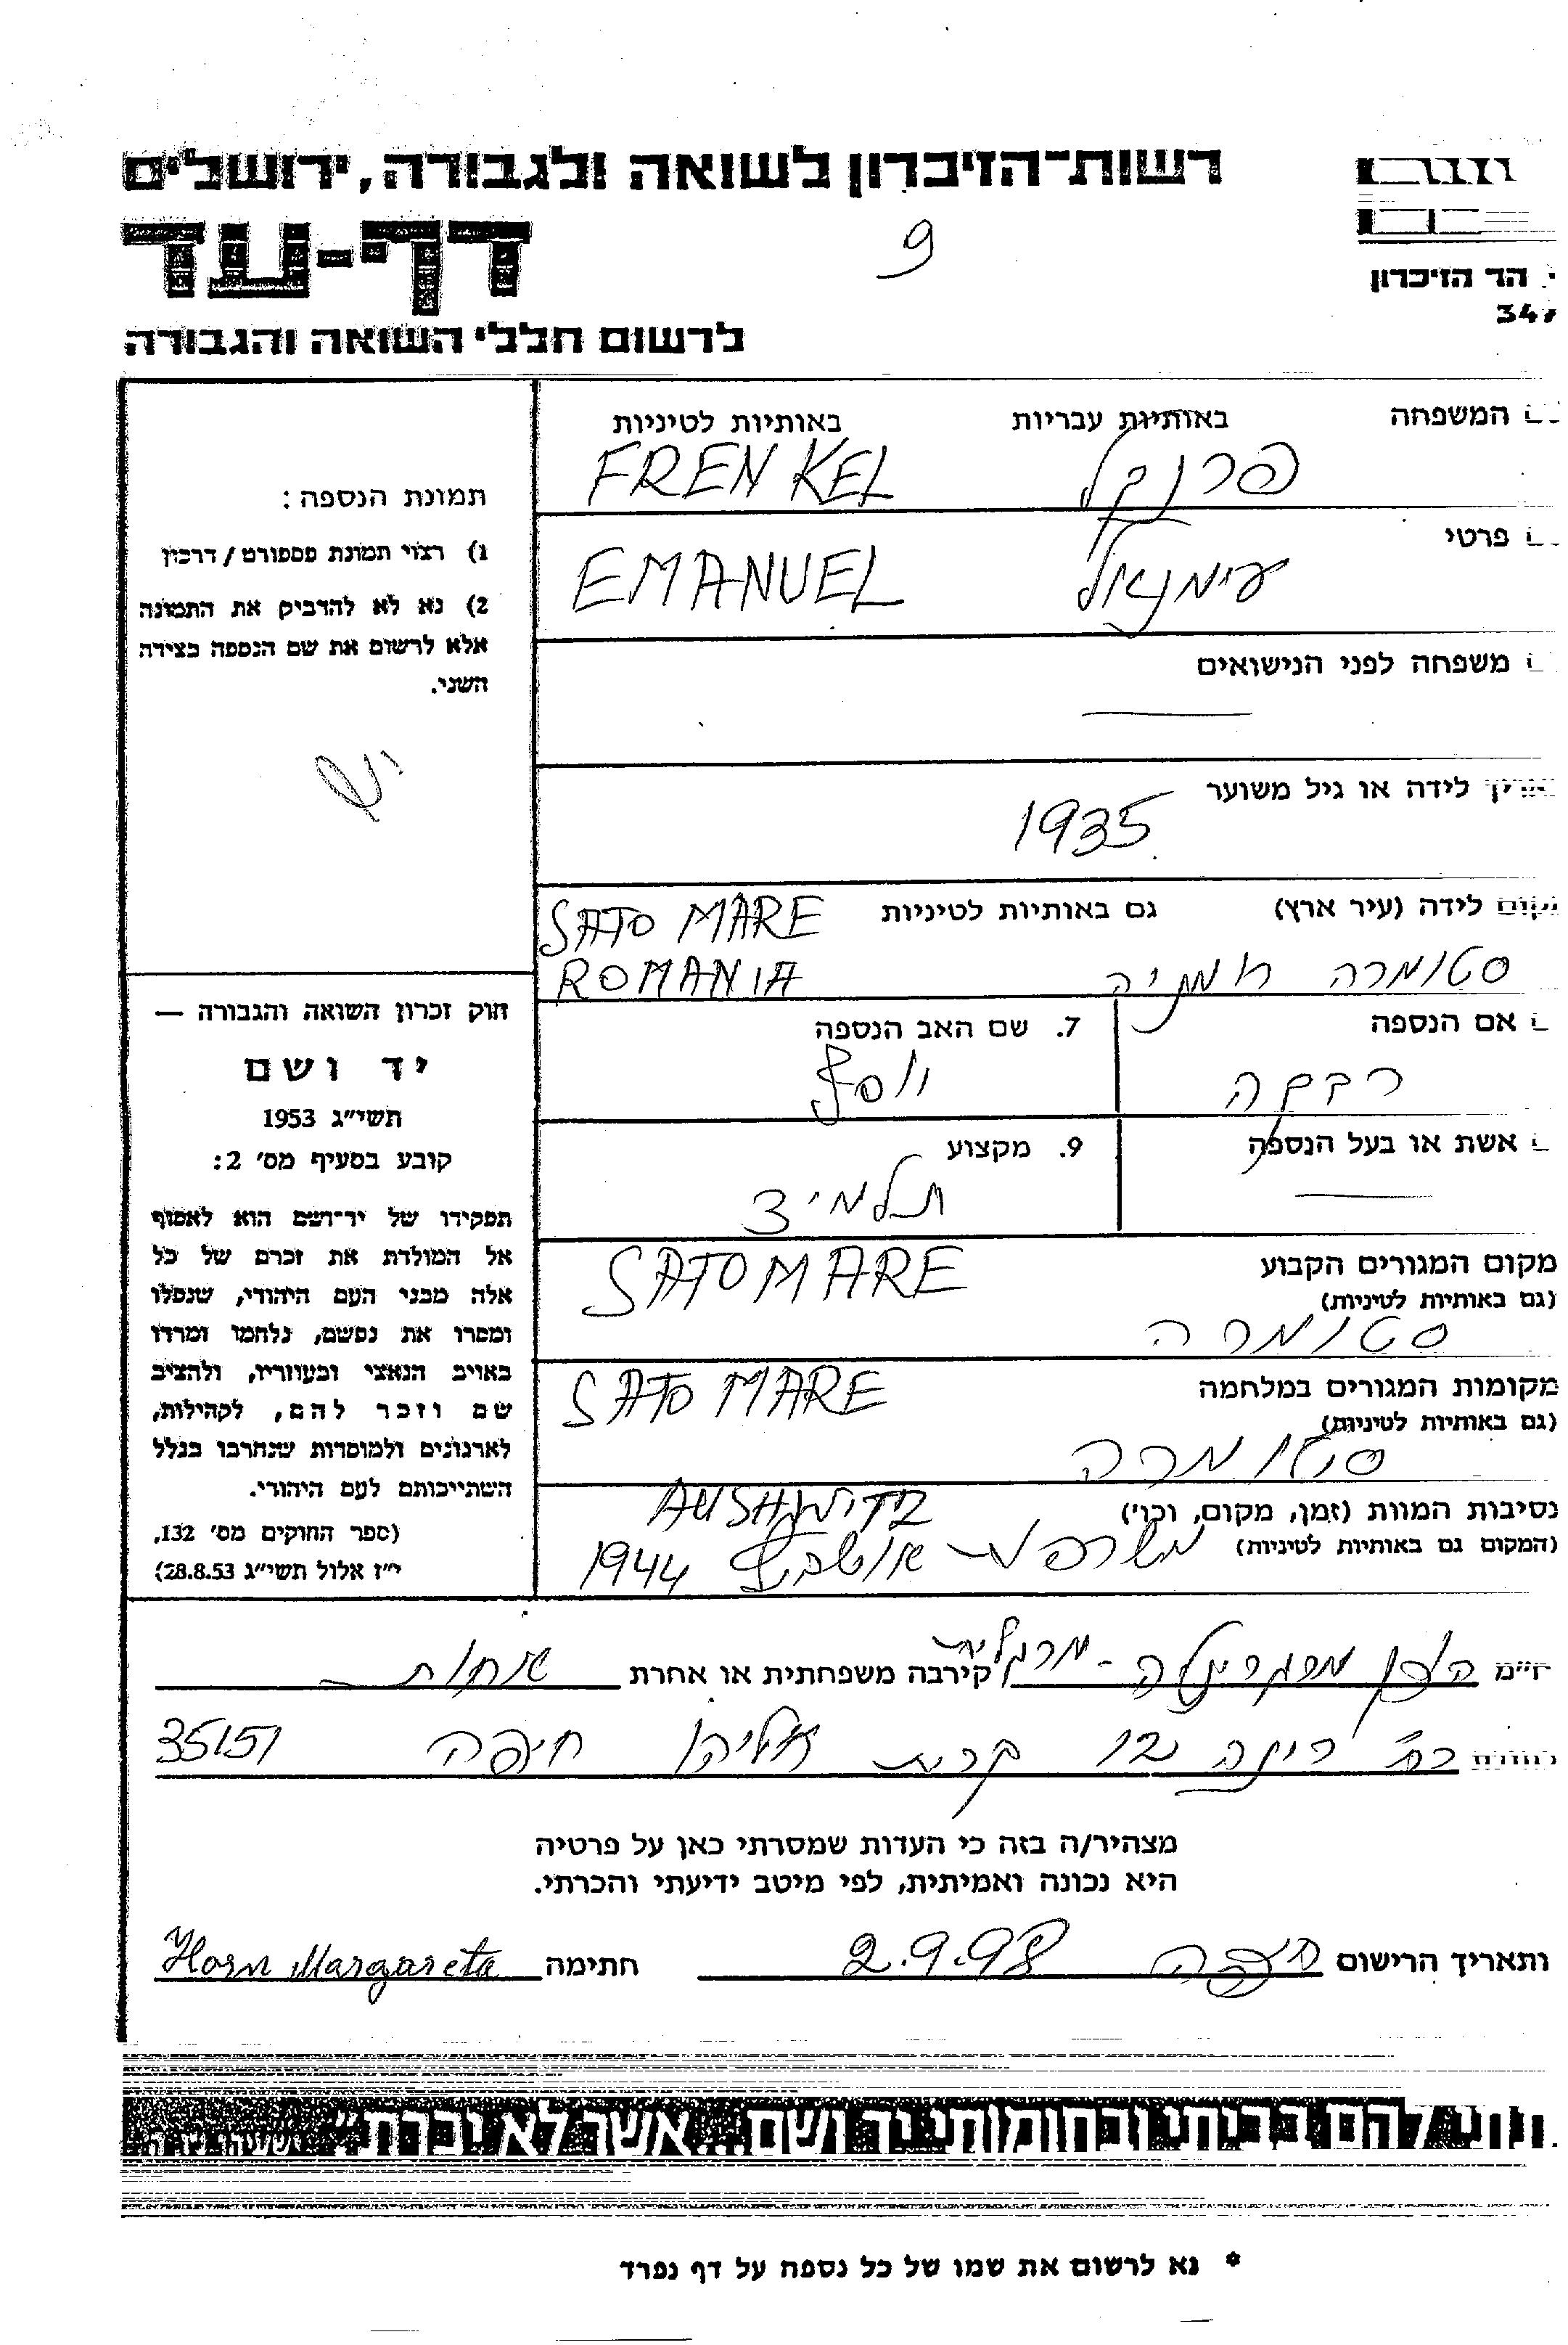 רשות-הזיכרון לשואה ולגבורה, ירושלים
דף-עד
9
הר הזיכרון
347
לרשום חללי השואה והגבורה
המשפחה באותיות עבריות באותיות לטיניות
פרנקל FRENKEL
פרטי
עימנואל EMANUEL
משפחה לפני הנישואים
לידה או גיל משוער
1935
לידה (עיר ארץ) גם באותיות לטיניות SATO MARE
סטומרה רומניה ROMANIA
אם הנספה
רבקה
7. שם האב הנספה
יוסף
אשת או בעל הנספה
9. מקצוע
תלמיד
מקום המגורים הקבוע SATOMARE
(גם באותיות לטיניות)
סטומרה
מקומות המגורים במלחמה SATO MARE
(גם באותיות לטיניות)
סטומרה
נסיבות המוות (זמן, מקום, וכו') AUSHWITZ
(המקום גם באותיות לטיניות) משרפות אושביץ 1944
תמונת הנספה:
1) רצוי תמונת פספורט / דרכון
2) נא לא להדביק את התמונה
אלא לרשום את שם הנספה בצידה
השני.
יש
חוק זכרון השואה והגבורה —
יד ושם
תשי"ג 1953
קובע בסעיף מס' 2:
תפקידו של יד-ושם הוא לאסוף
אל המולדת את זכרם של כל
אלה מבני העם היהודי, שנפלו
ומסרו את נפשם, נלחמו ומרדו
באויב הנאצי ובעוזריו, ולהציב
שם וזכר להם, לקהילות,
לארגונים ולמוסדות שנחרבו בגלל
השתייכותם לעם היהודי.
(ספר החוקים מס' 132,
י"ז אלול תשי"ג 28.8.53)
הורן מרגרטה - מרגלית קירבה משפחתית או אחרת אחות
רח' רינה 12 קרית אליהו חיפה 35151
מצהיר/ה בזה כי העדות שמסרתי כאן על פרטיה
היא נכונה ואמיתית, לפי מיטב ידיעתי והכרתי.
ותאריך הרישום חיפה 2.9.98 חתימה Horn Margareta
להם בביתי ובחומותי יד ושם... אשר לא יכרת"
* נא לרשום את שמו של כל נספה על דף נפרד